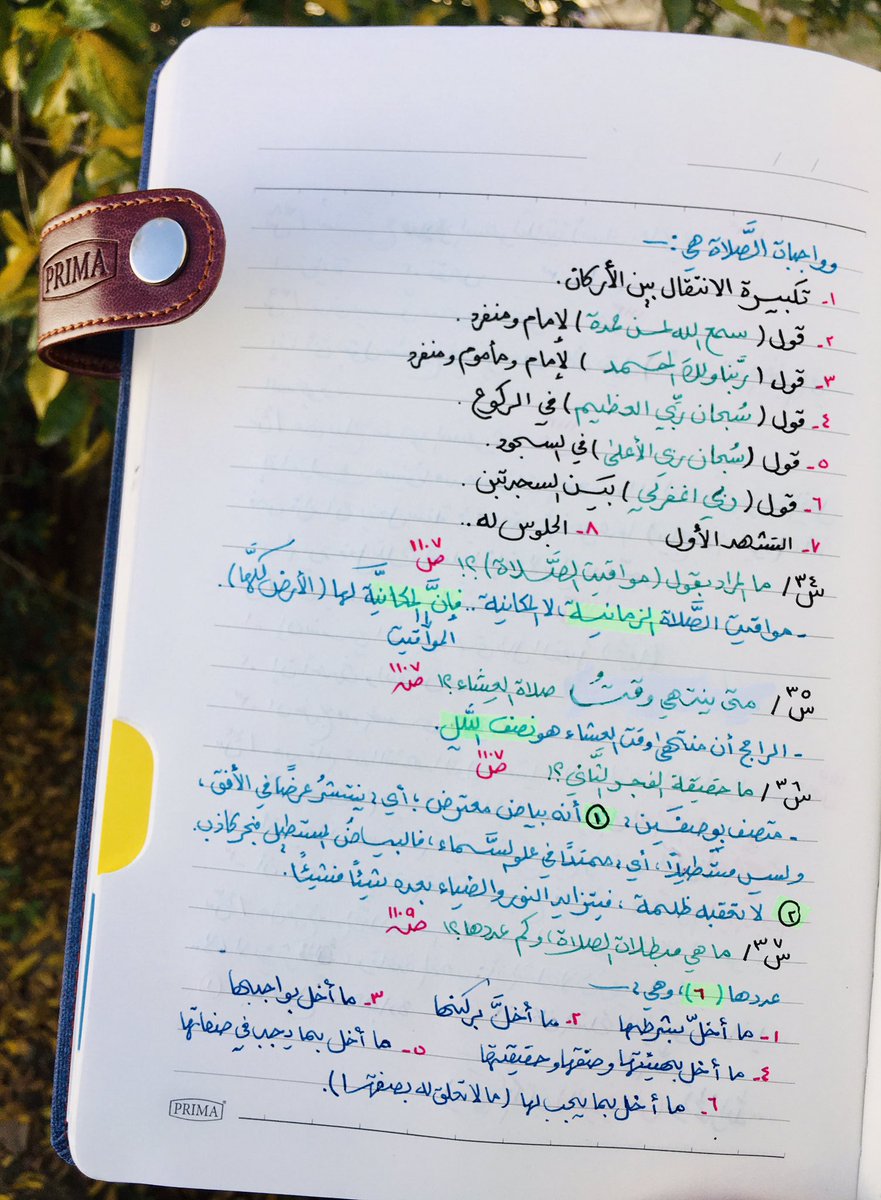 PRIMA
وواجبات الصَّلاة هي :ـ
١- تكبيرة الانتقال بين الأركان.
٢- قول ( سمع الله لمن حمدة ) لإمام ومنفرد .
٣- قول ( ربَّنا ولك الحَمد ) لإمام ومأموم ومنفرد
٤- قول ( سُبحان ربِّي العظيم ) في الركوع .
٥- قول ( سُبحان ربي الأعلىٰ ) في السجود .
٦- قول ( ربي اغفرلي ) بَين السجدتين .
٧- التشهد الأول ٨- الجلوس له ..
س٣٤/ ما المراد بقول ( مواقيت الصَّلاة ) ؟! ص١١٠٧
- مواقيت الصَّلاة الزمانية لا المكانية .. فإنَّ المكانيَّة لها ( الأرض كلَّها ) .
المواقيت
س٣٥/ متى ينتهي وقتُ صلاة العِشاء ؟! ص١١٠٧
- الراجح أن منتهى وقت العشاء هو نصف اللَّيل .
س٣٦/ ما حقيقة الفجر الثَّاني ؟! ص١١٠٧
- متصف بوصفَين : ① أنه بياض معترض ؛ أي : ينتشرُ عرضًا في الأفق ،
وليس مستطيلًا ، أي : ممتدًا في علو السَّماء ، فالبياضُ المستطيل فجر كاذب .
② لا تعقبه ظلمة ، فيتزايد النور والضياء بعده شيئًا فشيئًا .
س٣٧/ ما هي مبطلات الصلاة ، وكم عددها ؟! ص١١٠٩
عددها ( ٦ ) ، وهي :ـ
١- ما أخلّ بشرطها ٢- ما أخلَّ بركنها ٣- ما أخل بواجبها
٤- ما أخل بهيئتها وصفتها وحقيقتها ٥- ما أخل بما يجب في صفاتها
٦- ما أخل بما يجب لها ( ما لا تعلق له بصفتها ) .
PRIMA